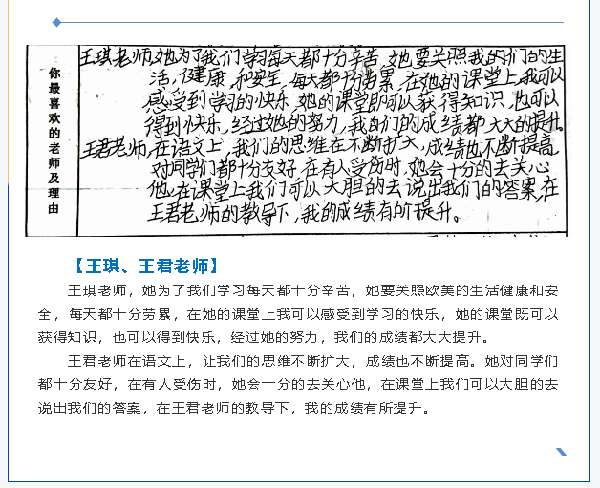 你最喜欢的老师及理由
王琪老师,她为了我们学习每天都十分辛苦,她要关照我的们的生
活,健康,和安全,每天都十分劳累,在她的课堂上,我可以
感受到学习的快乐,她的课堂即可以获得知识,也可以
得到快乐,经过她的努力,我们的成绩都大大的提升。
王君老师,在语文上,我们的思维在不断扩大,成绩也不断提高
对同学们都十分友好,在有人受伤时,她会十分的去关心
他,在课堂上我们可以大胆的去说出我们的答案,在
王君老师的教导下,我的成绩有所提升。
【王琪、王君老师】
王琪老师，她为了我们学习每天都十分辛苦，她要关照欧美的生活健康和安
全，每天都十分劳累，在她的课堂上我可以感受到学习的快乐，她的课堂既可以
获得知识，也可以得到快乐，经过她的努力，我们的成绩都大大提升。
王君老师在语文上，让我们的思维不断扩大，成绩也不断提高。她对同学们
都十分友好，在有人受伤时，她会一分的去关心他，在课堂上我们可以大胆的去
说出我们的答案，在王君老师的教导下，我的成绩有所提升。